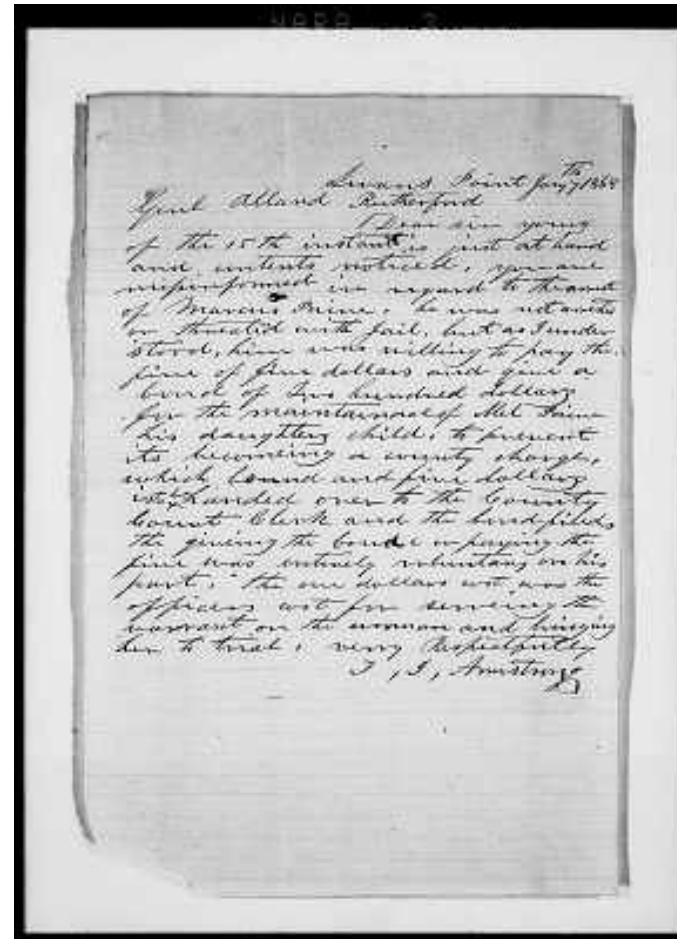 Swans Point Jany 17th 1868
Genl Alland Rutherford
Dear sir yours
of the 15th instant is just at hand
and contents noticed, you are
misinformed in regard to the arrest
of Marcus Prine, he was not arrested
or threated with jail, but as I under
stood, him was willing to pay the
fine of five dollars and give a
bond of Two hundred dollars
for the maintainance of Mel Prine
his daughters child, to prevent
its becomeing a county charge,
which bond and five dollars
is handed over to the County
Court Clerk and the bond filed,
the giveing the bond or paying the
fine was entirely voluntary on his
part, the one dollars cost was the
officers cost for serveing the
warrant on the woman and bringing
her to trial, verry Respectfully
T, J, Armstrong